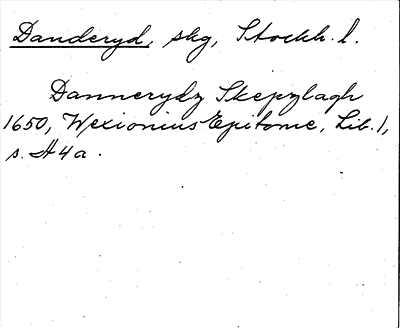 Danderyd, skg, Stockh. l.
Dannerydz Skepzlagh
1650, Wexionius Epitome, Lib. 1,
s. H 4 a.